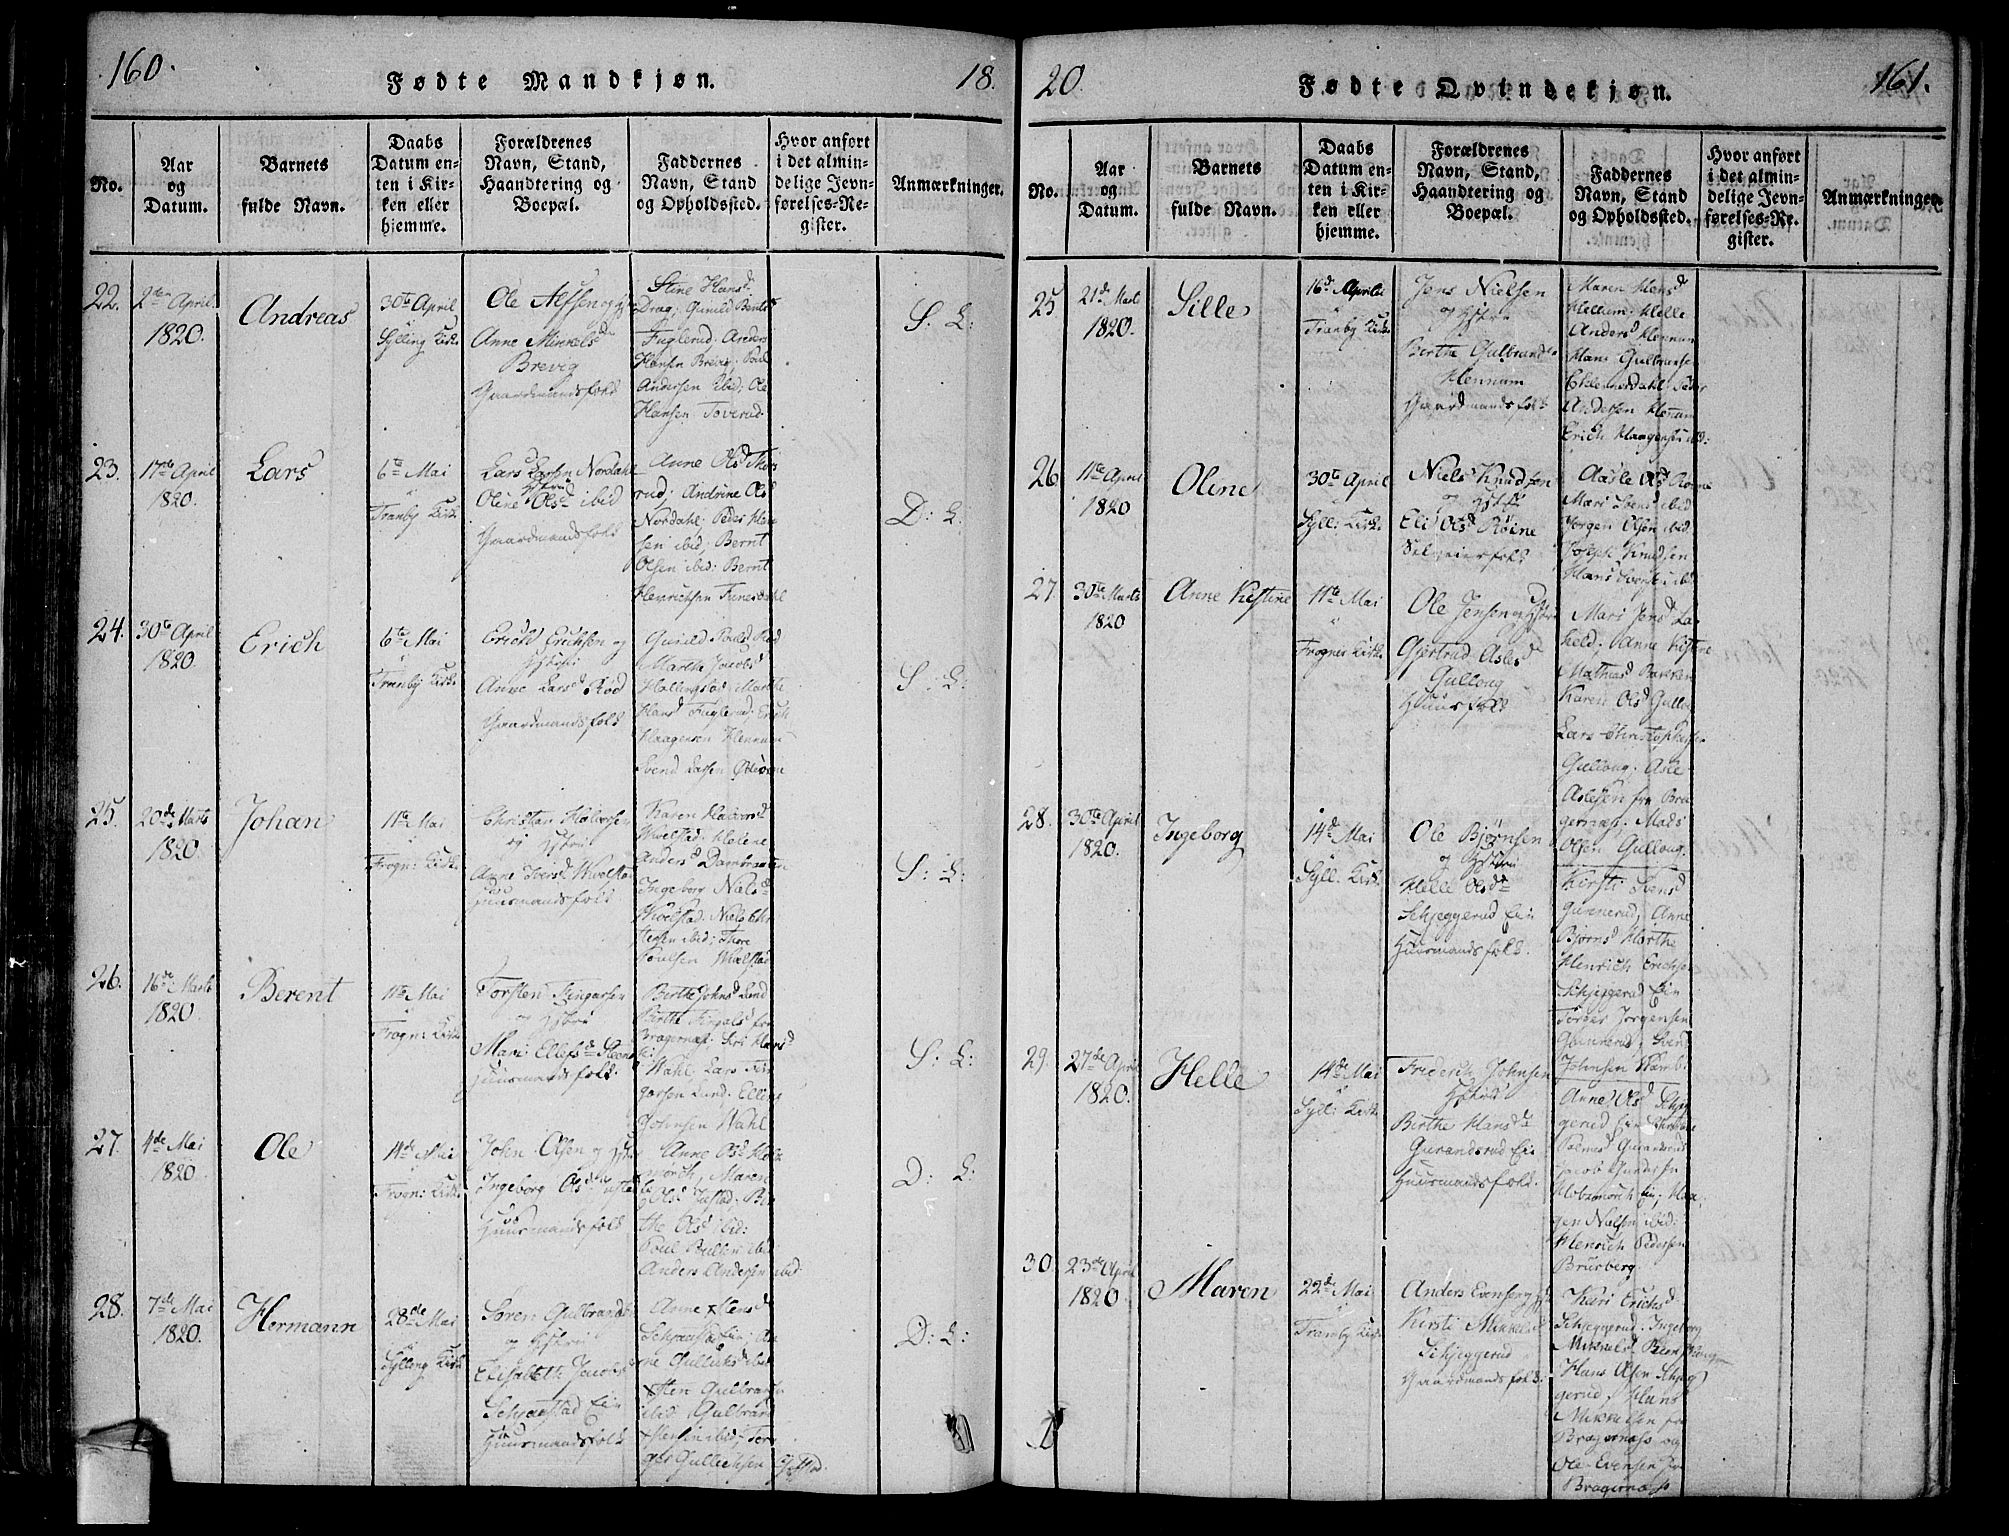 160.
Fødte Mandkjøn.
18.
No.
Aar
og
Datum.
Barnets
fulde Navn.
Daabs
Datum en-
ten i Kir-
ken eller
hjemme.
Forældrenes
Navn, Stand,
Haandtering og
Boepæl.
Faddernes
Navn, Stand
og Opholdssted.
Hvor anført
i det almin-
delige Jevn-
førelses-Re-
gister.
Anmærkninger.
22.
2de April
1820.
Andreas
30te April
Sylling Kirke
Ole Alfsen og Hstru
Anne Mikkelsd
Brevig
Gaardmandsfolk
Stine Hansd
Drag; Gunild Berntsd
Fuglerud; Anders
Hansen Brevig; Poul
Andersen ibid; Ole
Hansen Toverud
S: L:
23.
17de April
1820.
Lars
6te Mai
Tranby Kirke
Lars Larsen Nordahl
Hstru
Oline Olsd ibid
Gaardmandsfolk
Anne Olsd Thor
rud; Andrine Olsd
Nordahl; Peder Han
sen ibid; Bernt
Olsen ibid; Bernt
Henrichsen Tunesdahl
D: L:
24.
30te April
1820.
Erich
6te Mai
Tranby Kirke
Erich Erichsen og
Hstru
Anne Larsd Rød
Gaardmandsfolk
Gunild Poulsd Rød
Marthe Jacobsd
Hallingstad; Marthe
Hansd Fuglerud; Erich
Haagensen Hennum
Svend Larsen
S: L:
25.
20de Marts
1820.
Johan
11te Mai
Frogn: Kirke
Christian Halvorsen
og Hstru
Anne Iversd Wivelstad
Huusmandsfolk
Karen Halvorsd
Wivelstad; Helene
Andersd
Ingeborg Nielsd
Wivelstad; Niels Chri
stensen ibid; Thore
Poulsen Wivelstad
S: L:
26.
16de Marts
1820.
Berent
11te Mai
Frogn: Kirke
Torsten Fingarsen
og Hstru
Mari Ellefsd
Huusmandsfolk.
Birthe Johnsd Lund
Birthe
Bragernæs; Siri Hansd
Wahl; Lars Fin
garsen Lund; Ellens
Johnsen Wahl
S: L:
27.
4de Mai
1820.
Ole
14de Mai
Frogn: Kirke
John Olsen og Hstru
Ingeborg Olsd Justad
Huusmandsfolk
Anne Olsd
Maren
Olsd Justad; Bir
the Olsd ibid:
Poul
Anders Andersen ibid
D: L:
28.
7de Mai
1820.
Hermann
28de Mai
Sylling Kirke
Søren Gulbrandsen
og Hstru
Elisabeth Jacobsd
Schjæstad Eie
Huusmandsfolk
Anne Stensd
Schjæstad Eie; An
ne Gulliksd ibid
Sten Gulbrandsen
ibid; Gulbrand
Stensen ibid; Tor
ger Gullechsen
D: L:
20.
Fødte Qvindekjøn.
161.
No.
Aar
og
Datum.
Barnets
fulde Navn.
Daabs
Datum en-
ten i Kir-
ken eller
hjemme.
Forældrenes
Navn, Stand,
Haandtering og
Boepæl.
Faddernes
Navn, Stand
og Opholdssted.
Hvor anført
i det almin-
delige Jevn-
førelses-Re-
gister.
Anmærkninger.
25
21de Marts
1820.
Sille
16de April
Tranby Kirke
Jens Nielsen
og Hstru
Birthe Gulbrandsd
Hennum
Gaardmandsfolk
Maren Hansd
Hellum; Helle
Andersd Hennum
Hans Gulbrandsen
Peder
Andersen Hennum
Erich Haagensen ibid:
26
11te April
1820
Oline
30te April
Syll: Kirke
Niels Knudsen
og Hstru
Eli Olsd Røine
Selveierfolk
Aasle Olsd Røine
Mari Svensd ibid
Jørgen Olsen ibid
Joseph Knudsen
Hans ibid
27.
30te Marts
1820
Anne Kistine
11te Mai
Frogner Kirke
Ole Jensen og Hstru
Gjertrud Aslesd
Gulloug
Huusfolk
Mari Jensd La
held; Anne Kistine
Mathiasd
Karen Olsd Gulloug
Lars Christophersen
Gulloug; Asle
Aslesen fra Bra
gernæs; Mads
Olsen Gulloug.
28.
30te April
1820.
Ingeborg
14de Mai
Syll: Kirke
Ole Bjørnsen
og Hstru
Helle Olsd
Schjeggerud Eie
Huusmandsfolk.
Kirsti Svensd
Gunnerud; Anne
Bjørnsd
Henrich Erichsen
Schjeggerud Eie
Torger Jørgensen
Gunnerud; Svend
Johnsen
29.
27de April
1820.
Helle
14de Mai
Syll: Kirke
Friderich Johnsen
Hstru
Birthe Hansd
Gurandsrud Eie
Huusmandsfolk.
Anne Olsd Schjeg
gerud Eie
Jacob
Haa
gen Nielsen ibid:
Henrich Pedersen
Brurberg.
30
23de April
1820.
Maren
22de Mai
Tranby Kirke
Anders Evensen og Hst
Kirsti Mikkelsd
Schjeggerud
Gaardmandsfolk:
Kari Erichsd
Schjeggerud; Ingeborg
Mikkelsd
Hans Olsen Schjeg
gerud; Hans
Mikkelsen fra
Bragernæs og
Ole Evensen fra
Bragernæss